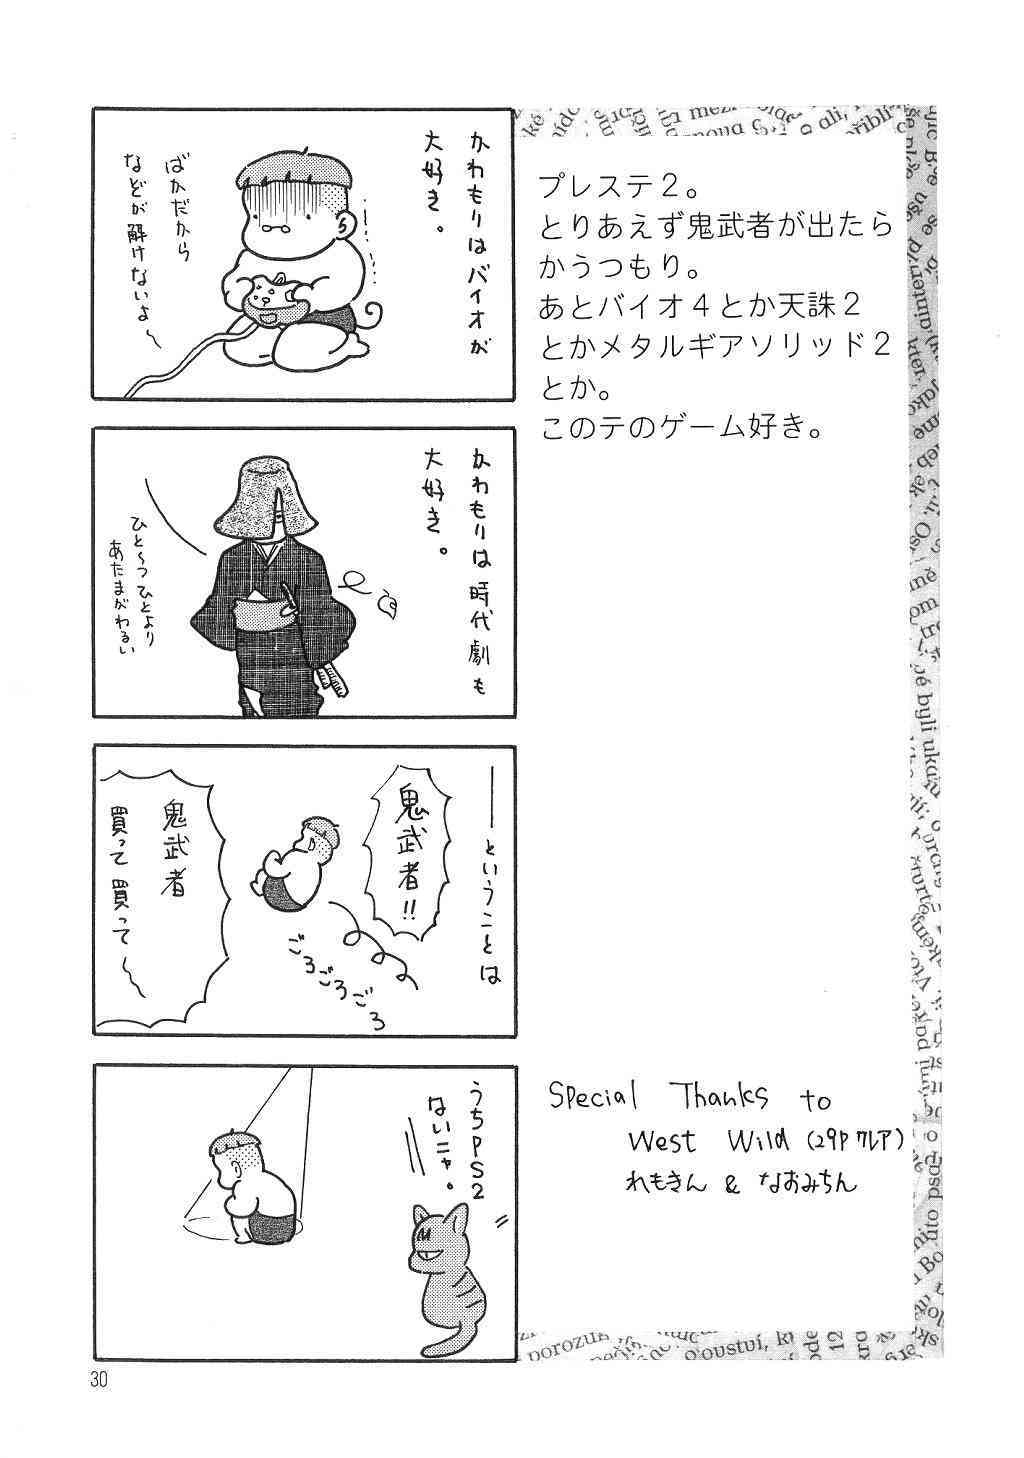 かわもりはバイオが
大好き。
ばかだから
なぞが解けないよ〜
かわもりは時代劇も
大好き。
ひと〜つひとより
あたまがわるい
――ということは
鬼武者!!
ごろごろごろ
鬼武者
買って買って〜
うちPS2
ないニャ。
プレステ2。
とりあえず鬼武者が出たら
かうつもり。
あとバイオ4とか天誅2
とかメタルギアソリッド2
とか。
このテのゲーム好き。
Special Thanks to
West Wild (29P クレア)
れもきん & なおみちん
30